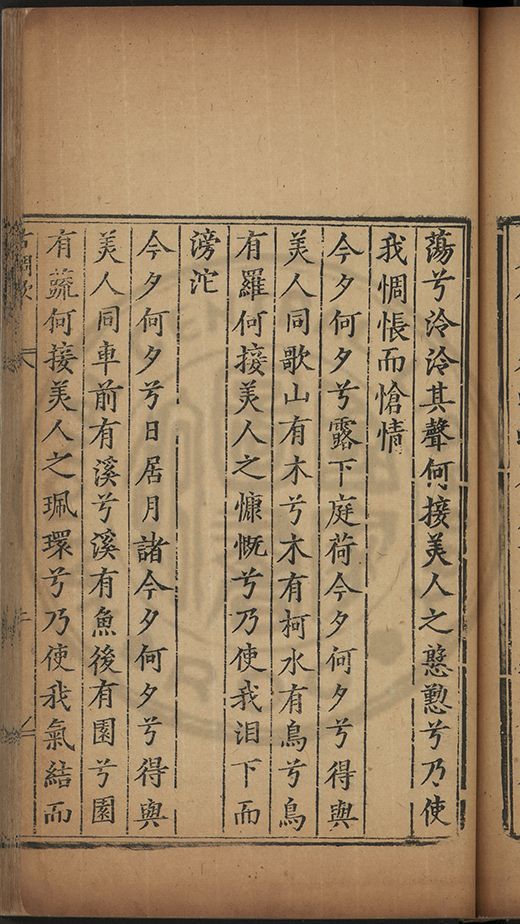 蕩兮泠泠其聲何接美人之慇懃兮乃使
我惆悵而愴情
今夕何夕兮露下庭荷今夕何夕兮得與
美人同歌山有木兮木有柯水有鳥兮鳥
有羅何接美人之慷慨兮乃使我泪下而
滂沱
今夕何夕兮日居月諸今夕何夕兮得與
美人同車前有溪兮溪有魚後有園兮園
有蔬何接美人之珮環兮乃使我氣結而